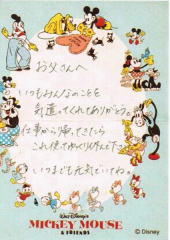 お父さんへ
いつもみんなのことを
気遣ってくれてありがとう。
仕事から帰ってきたら
これ使ってゆっくり休んでね。
いつまでも元気でいてね。
WALT DISNEY'S
MICKEY MOUSE
& FRIENDS
© Disney